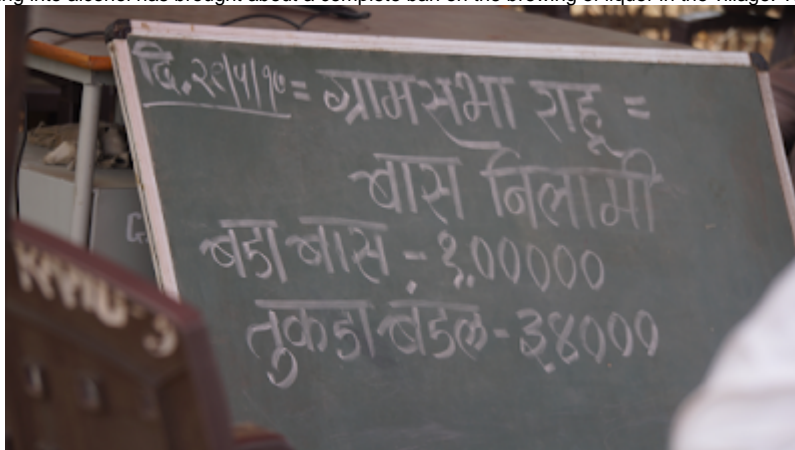 ing into alcohol has brought about a complete ban on the brewing of liquor in the village.
दि.२९/५/१७ = ग्रामसभा राहू =
बास निलामी
बडा बास - १,०००००
तुकडा बंडल - ३४०००